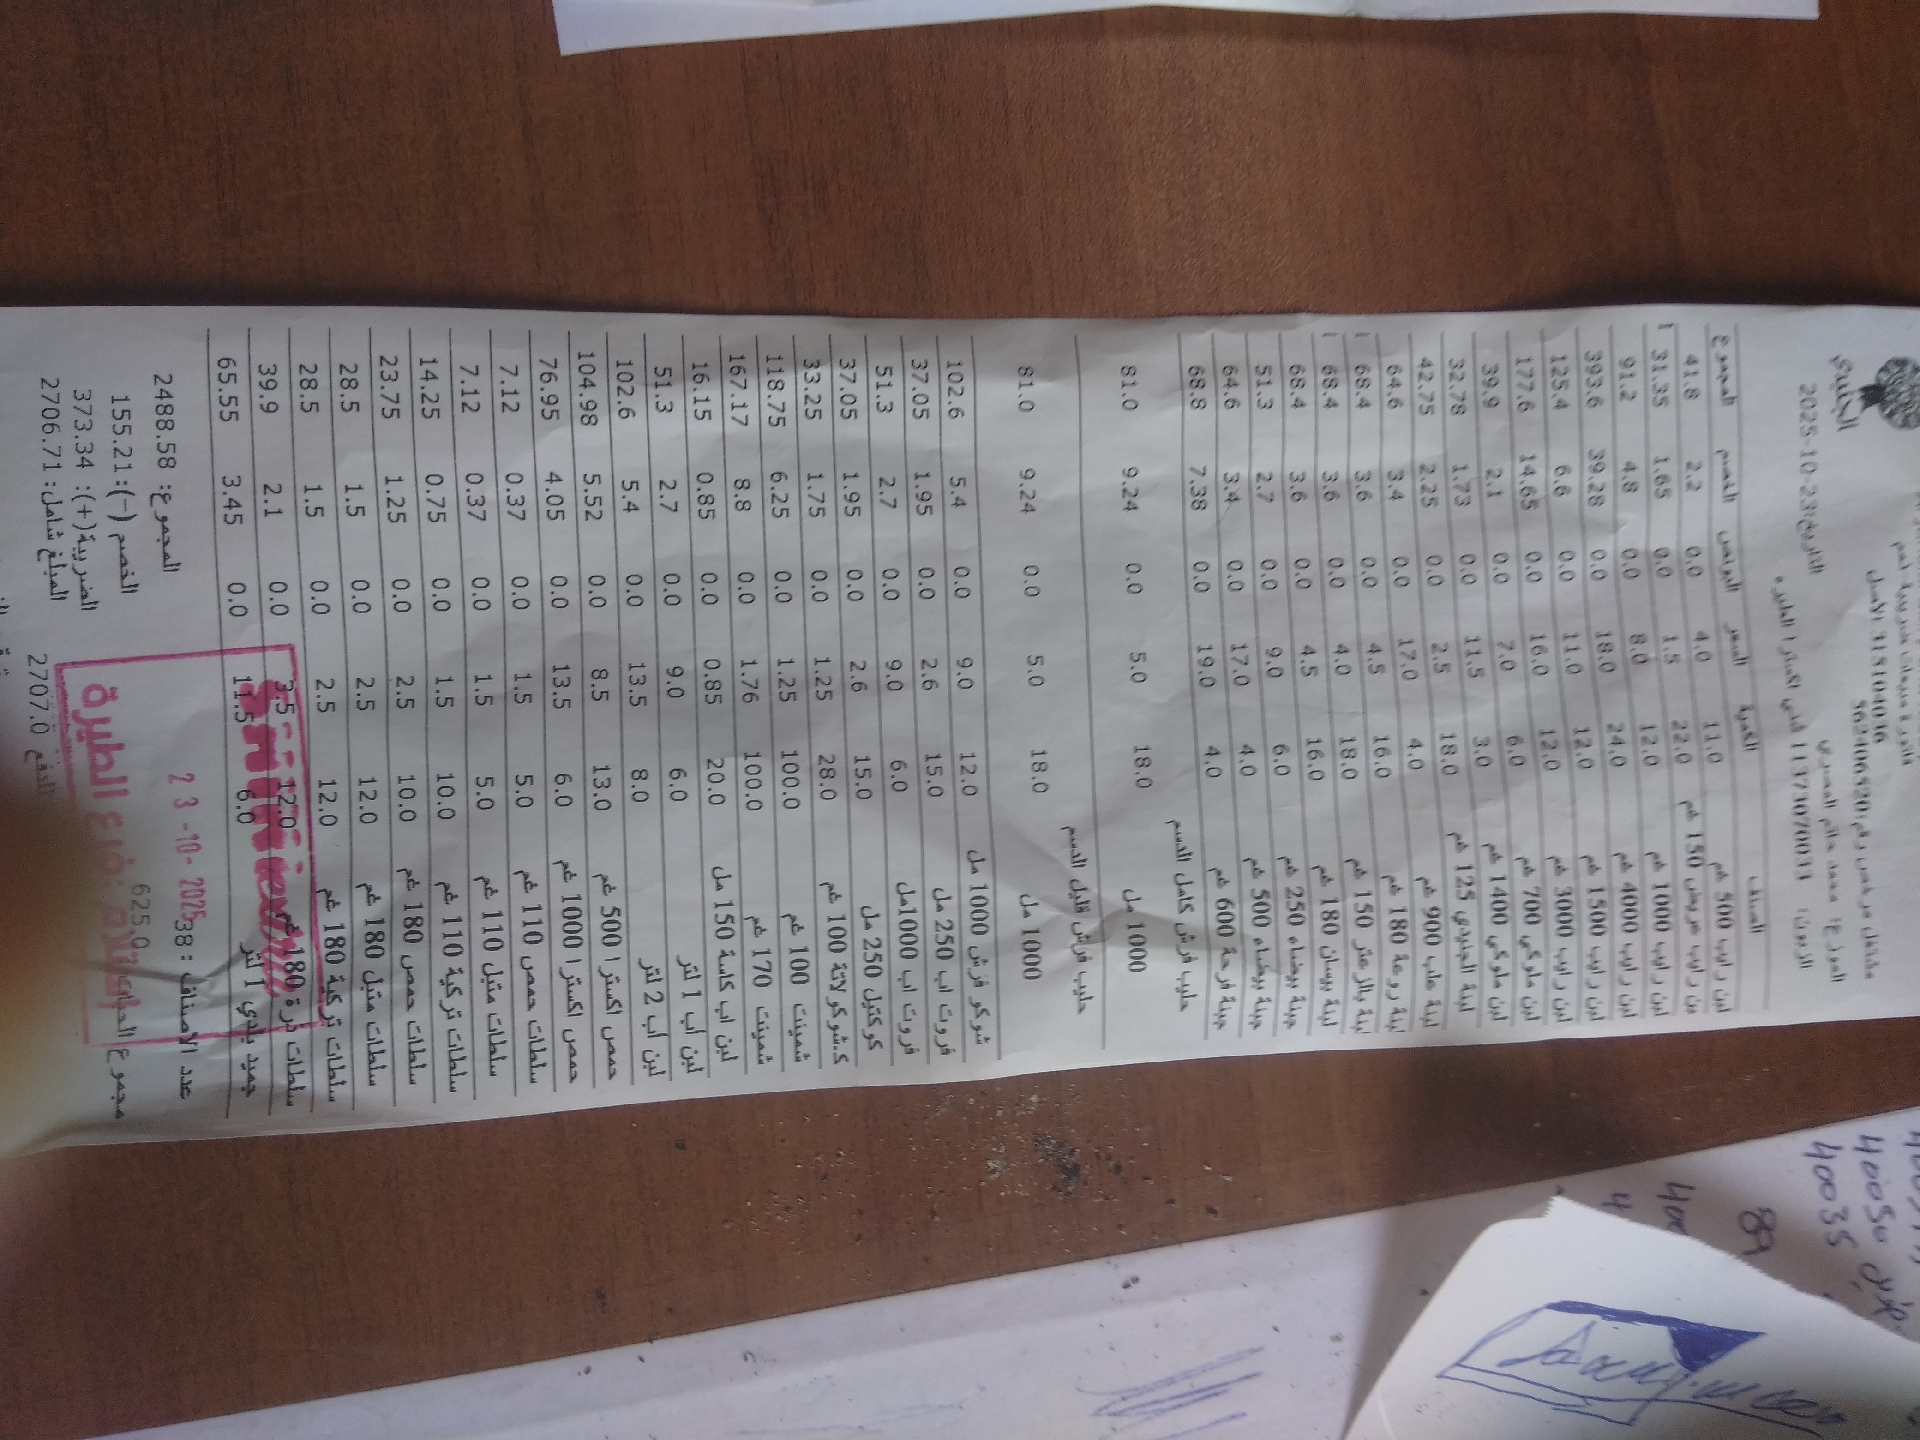 الجنيدي
فاتورة مبيعات ضريبية لحم
مشتغل مرخص رقم:562406920
الموزع: محمد حاتم المصري
التاريخ:23-10-2025
المجموع الخصم البونص السعر الكمية الصنف
لبن رايب 500 غم 11.0 4.0 0.0 2.2 41.8
لبن رايب عريض 150 غم 22.0 1.5 0.0 1.65 31.35
لبن رايب 1000 غم 12.0 8.0 0.0 4.8 91.2
لبن رايب 4000 غم 24.0 18.0 0.0 39.28 393.6
لبن رايب 1500 غم 12.0 11.0 0.0 6.6 125.4
لبن رايب 3000 غم 12.0 16.0 0.0 14.65 177.6
لبن ملوكي 700 غم 6.0 7.0 0.0 2.1 39.9
لبن ملوكي 1400 غم 3.0 11.5 0.0 1.73 32.78
لبنة الجنيدي 125 غم 18.0 2.5 0.0 2.25 42.75
لبنة علب 900 غم 4.0 17.0 0.0 3.4 64.6
لبنة روعة 180 غم 16.0 4.5 0.0 3.6 68.4
لبنة بالزعتر 150 غم 18.0 4.0 0.0 3.6 68.4
لبنة بيسان 180 غم 16.0 4.5 0.0 3.6 68.4
جبنة بيضاء 250 غم 6.0 9.0 0.0 2.7 51.3
جبنة بيضاء 500 غم 4.0 17.0 0.0 3.4 64.6
جبنة فرحة 600 غم 4.0 19.0 0.0 7.38 68.8
حليب فرش كامل الدسم
1000 مل 18.0 5.0 0.0 9.24 81.0
حليب فراش قليل الدسم
1000 مل 18.0 5.0 0.0 9.24 81.0
شوكو فرش 1000 مل 12.0 9.0 0.0 5.4 102.6
فروت اب 250 مل 15.0 2.6 0.0 1.95 37.05
فروت اب 1000مل 6.0 9.0 0.0 2.7 51.3
كوكتيل 250 مل 15.0 2.6 0.0 1.95 37.05
ك.شوكولاتة 100 غم 28.0 1.25 0.0 1.75 33.25
شمينت 100 غم 100.0 1.25 0.0 6.25 118.75
شمينت 170 غم 100.0 1.76 0.0 8.8 167.17
لبن اب كاسة 150 مل 20.0 0.85 0.0 0.85 16.15
لبن أب 1 لتر 6.0 9.0 0.0 2.7 51.3
لبن أب 2 لتر 8.0 13.5 0.0 5.4 102.6
حمص اكسترا 500 غم 13.0 8.5 0.0 5.52 104.98
حمص اكسترا 1000 غم 6.0 13.5 0.0 4.05 76.95
سلطات حمص 110 غم 5.0 1.5 0.0 0.37 7.12
سلطات متبل 110 غم 5.0 1.5 0.0 0.37 7.12
سلطات تركية 110 غم 10.0 1.5 0.0 0.75 14.25
سلطات حمص 180 غم 10.0 2.5 0.0 1.25 23.75
سلطات متبل 180 غم 12.0 2.5 0.0 1.5 28.5
سلطات تركية 180 غم 12.0 2.5 0.0 1.5 28.5
سلطات ذرة 180 غم 12.0 3.5 0.0 2.1 39.9
جميد بلدي 1 لتر 6.0 11.5 0.0 3.45 65.55
عدد الاصناف : 38 المجموع: 2488.58
23-10-2025
625.0 الخصم (-): 155.21
الضريبة(+): 373.34
فرع الطيرة
المبلغ شامل: 2706.71
2707.0
40050
40035
89